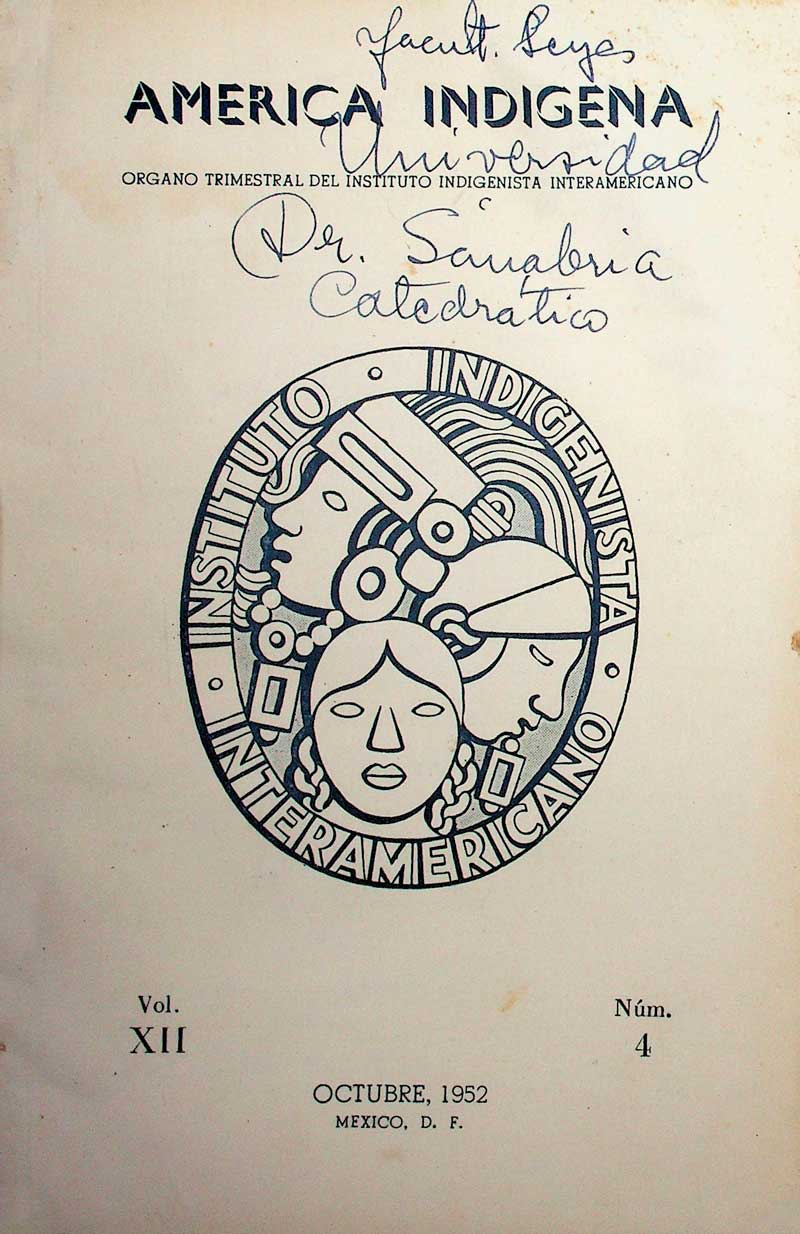 Facult. Leyes
AMERICA INDIGENA
Universidad
ORGANO TRIMESTRAL DEL INSTITUTO INDIGENISTA INTERAMERICANO
Dr. Sanabria
Catedrático
INSTITUTO • INDIGENISTA • INTERAMERICANO •
Vol.
XII
Núm.
4
OCTUBRE, 1952
MEXICO, D. F.